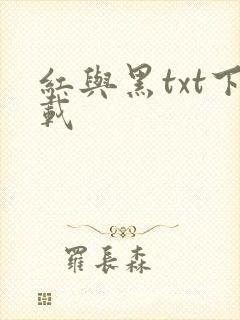 紅與黑txt下
載
羅長森